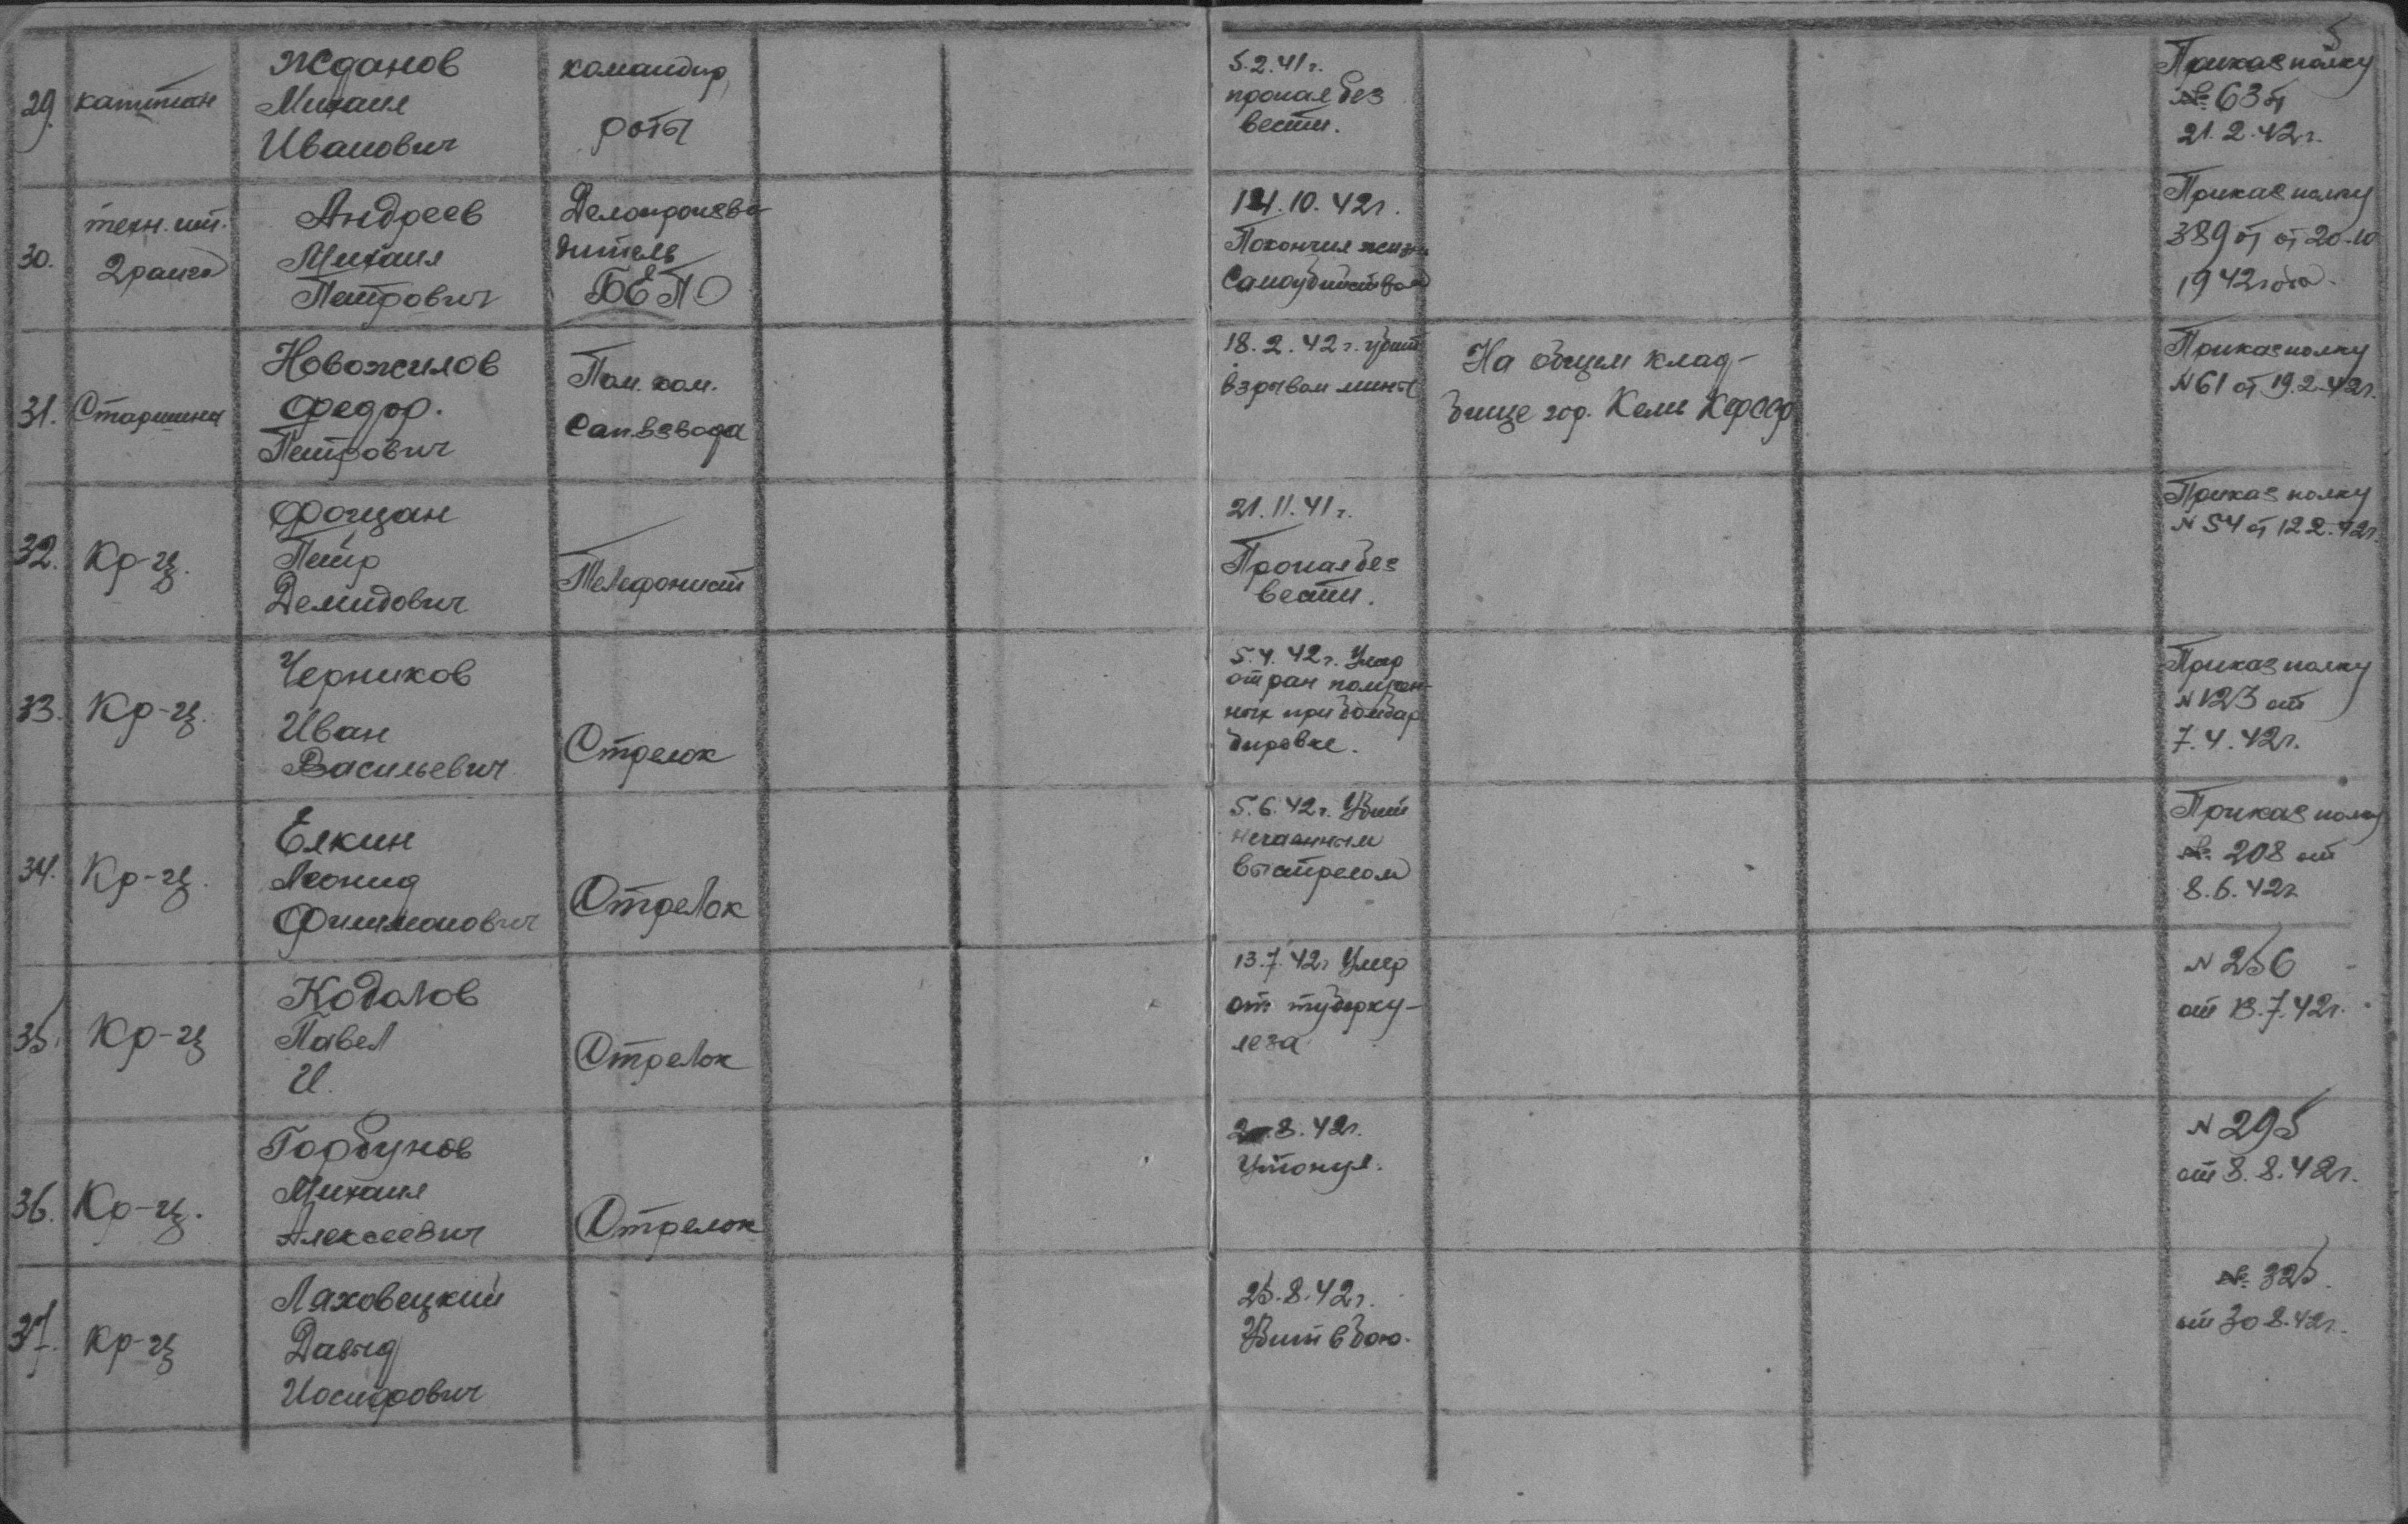 5
29.
капитан
Жданов
Михаил
Иванович
командир
роты
5.2.41 г.
пропал без
вести.
Приказ полку
№ 63 от
21.2.42 г.
30.
техн. инт.
2 ранга
Андреев
Михаил
Петрович
Делопроизво-
дитель
14.10.42 г.
Покончил жизнь
самоубийством
Приказ полку
389 от от 20.10
1942 года.
31.
Старшина
Новожилов
Федор.
Петрович
Пом. ком.
Сап. взвода
18.2.42 г. убит
взрывом мины
На общем клад-
бище гор. Кемь КФССР
Приказ полку
N 61 от 19.2.42 г.
32.
Кр-ц.
Петр
Демидович
Телефонист
21.11.41 г.
Пропал без
вести.
Приказ полку
N 54 от 12.2.42 г.
33.
Кр-ц.
Черников
Иван
Васильевич
Стрелок
5.4.42 г. Умер
от ран получен-
ных при бомбар
дировке.
Приказ полку
N 123 от
7.4.42 г.
34.
Кр-ц.
Елкин
Леонид
Филимонович
Стрелок
5.6.42 г. Убит
нечаянным
выстрелом
Приказ полку
№ 208 от
8.6.42 г.
35.
Кр-ц
Кодолов
Павел
И.
Стрелок
13.7.42 г. Умер
от туберку-
леза
N 256
от 13.7.42 г.
36.
Кр-ц.
Горбунов
Михаил
Алексеевич
Стрелок
8.42 г.
Утонул.
N 295
от 8.8.42 г.
37.
Кр-ц
Ляховецкий
Давыд
Иосифович
25.8.42 г.
Убит в бою.
№ 325.
от 30.8.42 г.